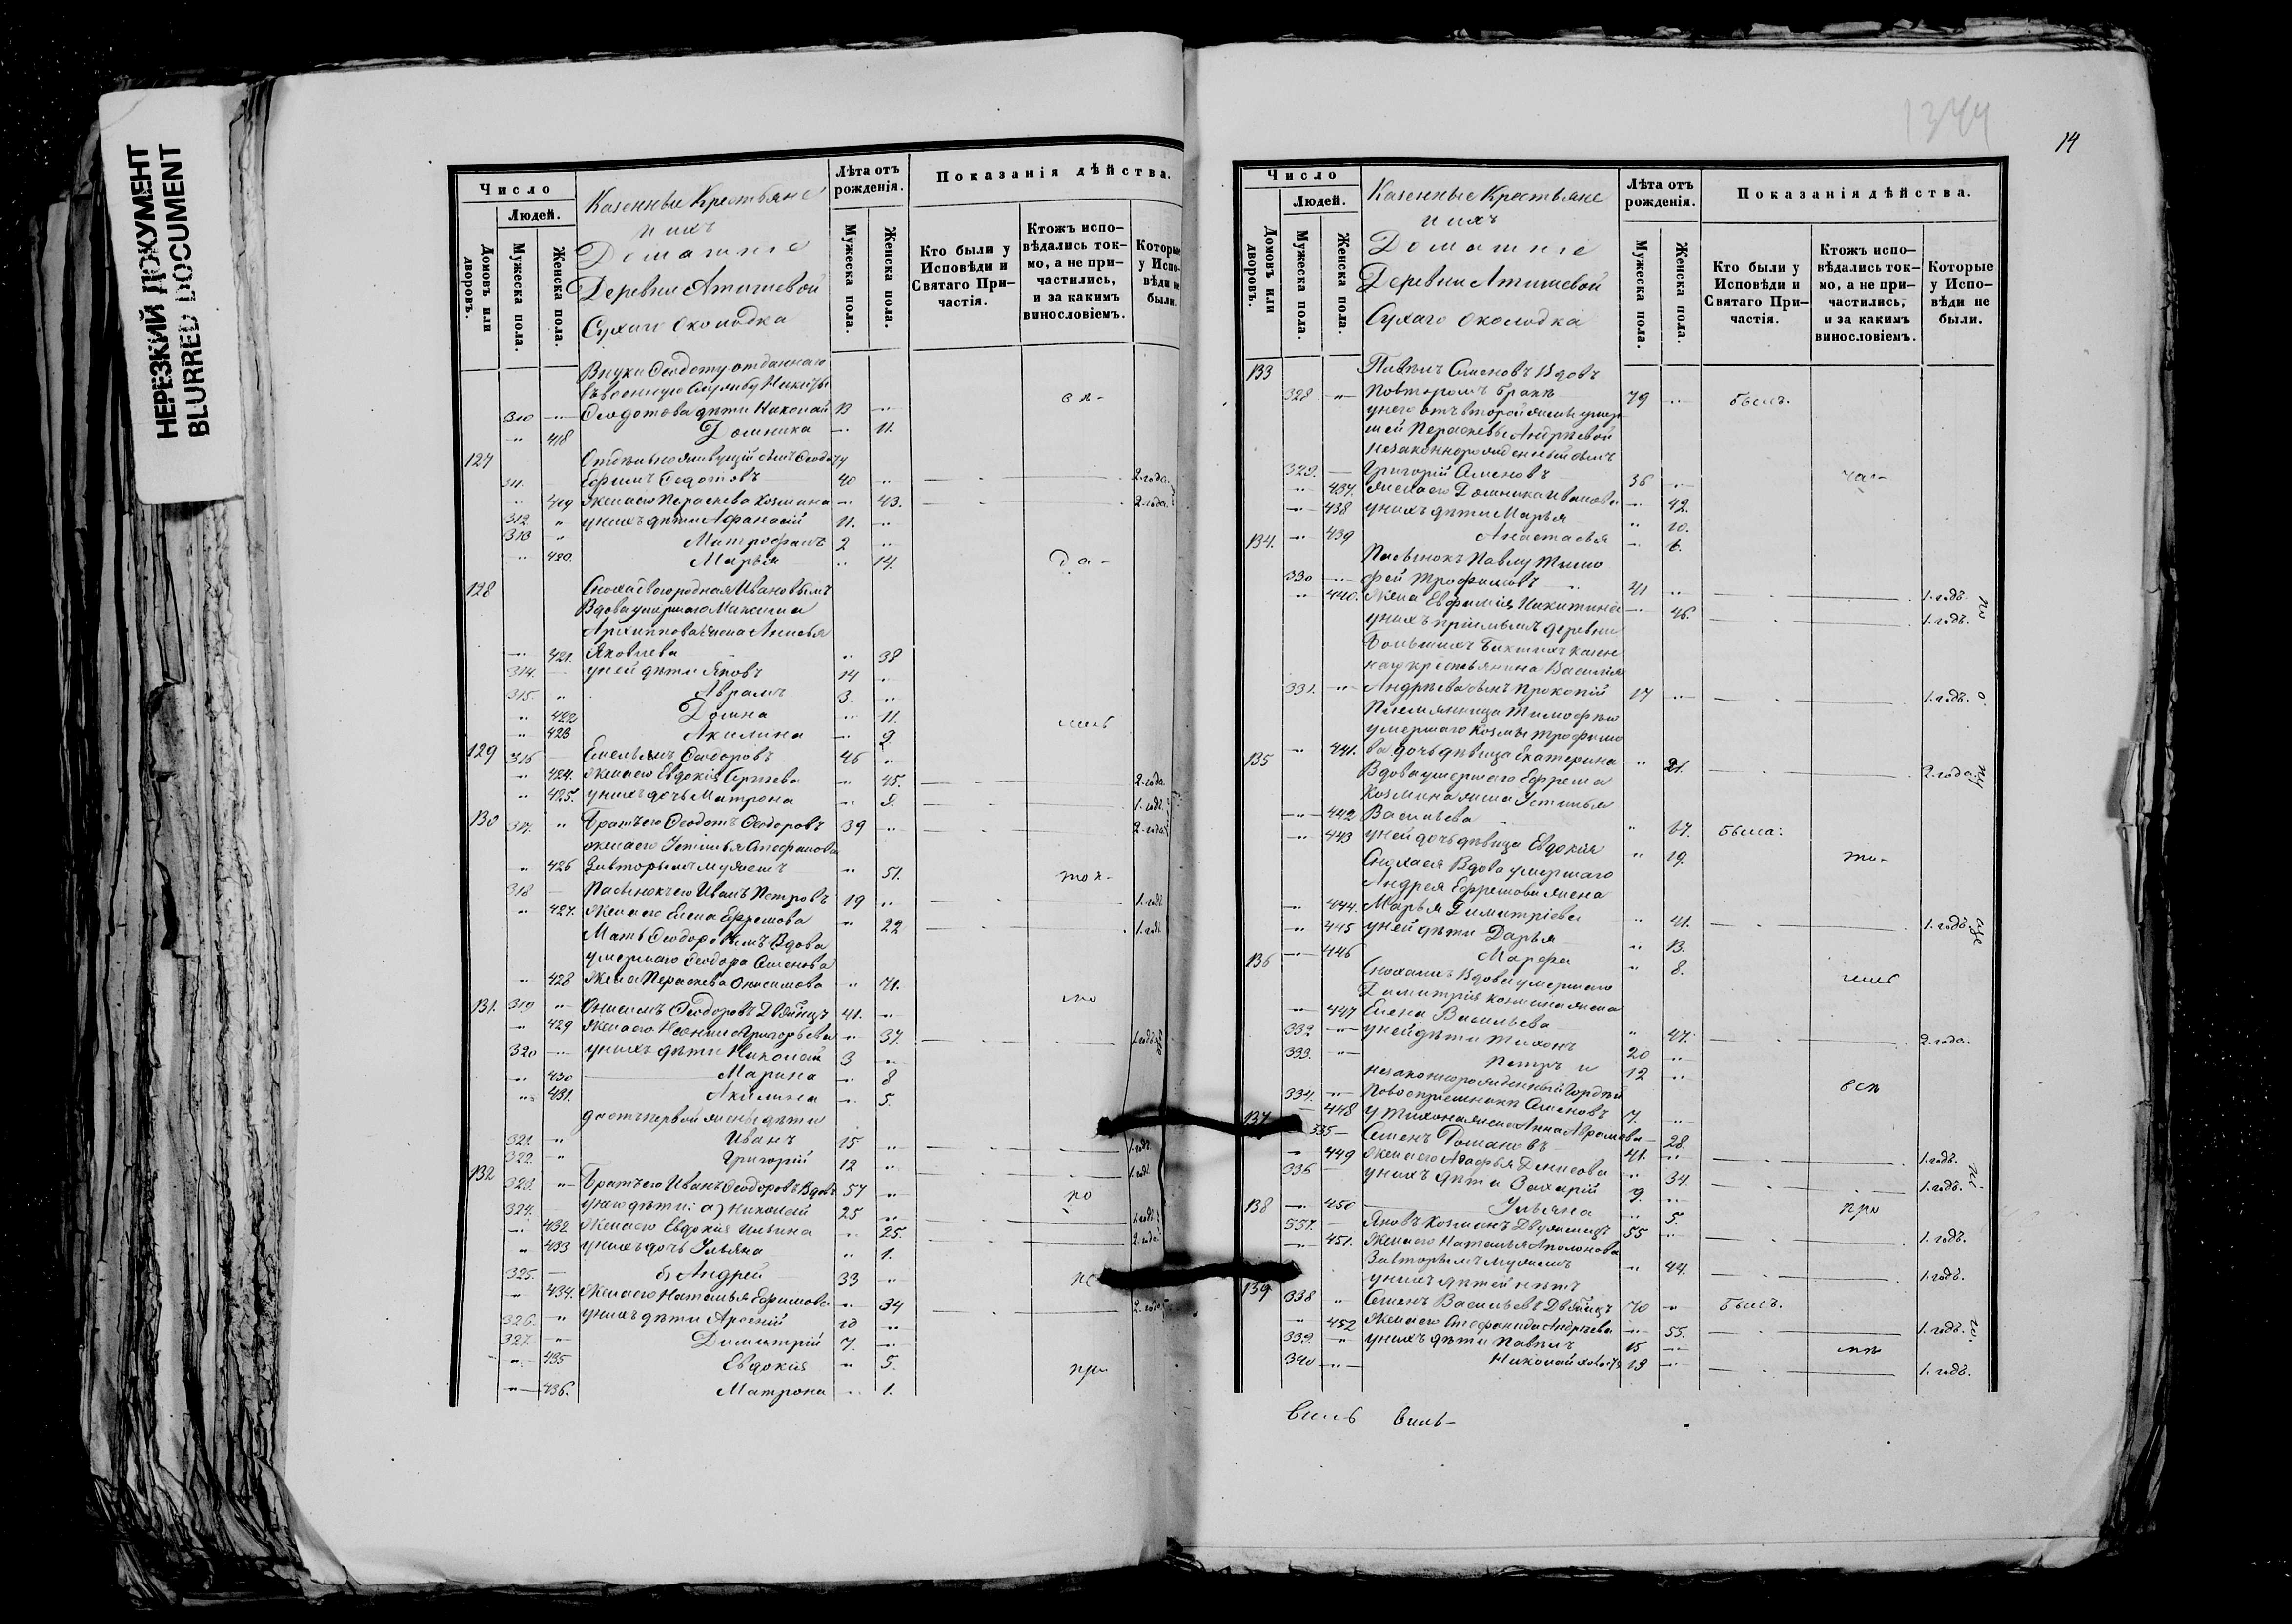 НЕРЕЗКИЙ ДОКУМЕНТ
BLURRED DOCUMENT
Число
Людей.
Домовъ или дворовъ.
Мужеска пола.
Женска пола.
Казенные Крестьяне
и ихъ
Домашніе
Деревни Атишевой
Сухаго Околодка
Лѣта отъ рожденія.
Мужеска пола.
Женска пола.
Показанія дѣйства.
Кто были у Исповѣди и Святаго Причастія.
Ктожъ исповѣдались токмо, а не причастились, и за какимъ винословіемъ.
Которые у Исповѣди не были.
Внуки Ѳеодоту отданнаго
въ военную службу Никиты
310 Ѳеодотова дѣти Николай 13
418 Домника 11.
127 Отдѣльно живущій сынъ Ѳеодоту
311. Ефимъ Ѳедотовъ 40 2. года.
419 Жена его Параскева Козмина 43. 2. года.
312. у нихъ дѣти Афанасій 11.
313 Митрофанъ 2
420. Марья 14. да-
128 Сноха двоюродная Ивановымъ
Вдова умершаго Максима
Архиппова жена Анисья
421. Яковлева 38
314. у ней дѣти Яковъ 14
315. Аврамъ 3.
422 Домна 11.
423 Акилина 9
129 316 Емельянъ Ѳеодоровъ 46
424. Жена его Евдокія Сергѣева 45. 2. года.
425. у нихъ дочь Матрона 9. 1. годъ.
130 317. Братъ его Ѳеодотъ Ѳеодоровъ 39 2. года
жена его Устинья Стефанова
426 За вторымъ мужемъ 51.
318 Пасынокъ его Иванъ Петровъ 19 1. годъ
427. Жена его Елена Ефремова 22 1. годъ
Мать Ѳеодоровымъ Вдова
умершаго Ѳеодора Семенова
428 Жена Параскева Онисимова 71.
131. 319 Онисимъ Ѳеодоровъ Двоеженецъ 41.
429 Жена его Ксенія Григорьева 37. 1. годъ
320 у нихъ дѣти Николай 3
430 Марина 8
431. Акилина 5.
да отъ первой жены дѣти
321. Иванъ 15 1. годъ
322. Григорій 12 1. годъ
132 323. Братъ его Иванъ Ѳеодоровъ Вдовъ 57 по
324. у него дѣти: а) Николай 25 1. годъ
432 Жена его Евдокія Ильина 25. 2. года
433 у нихъ дочь Ульяна 1.
325. б) Андрей 33
434. Жена его Наталья Ефимова 34 2. года
326. у нихъ дѣти Арсеній 10
327. Димитрій 7.
435 Евдокія 5.
436. Матрона 1.
1344
14
Число
Людей.
Домовъ или дворовъ.
Мужеска пола
Женска пола.
Казенные Крестьяне
и ихъ
Домашніе
Деревни Атишевой
Сухаго Околодка
Лѣта отъ рожденія.
Мужеска пола.
Женска пола.
Показанія дѣйства.
Кто были у Исповѣди и Святаго Причастія.
Ктожъ исповѣдались токмо, а не причастились, и за какимъ винословіемъ.
Которые у Исповѣди не были.
133 Павелъ Семеновъ Вдовъ
328 По второмъ бракѣ 79 былъ.
у него отъ второй жены умер
шей Параскевы Андрѣевой
незаконнорожденный сынъ
329. Григорій Семеновъ 36
437. жена его Домника Иванова 42.
438 у нихъ дѣти Марья 10.
439 Анастасья 6.
134. Пасынокъ Павлу Тимо
330 фей Трофимовъ 41 1. годъ.
440. Жена Евфимія Никитина 46. 1. годъ.
у нихъ пріемышъ деревни
наго крестьянина Василья
331. Андрѣева сынъ Прокопій 17 1. годъ.
Племянница Тимофею
умершаго Козмы Трофимо
441. ва дочь дѣвица Екатерина 21. 2. года.
135 Вдова умершаго Ефрема
Козмина жена Устинья
442 Васильева 67. была.
443 у ней дочь дѣвица Евдокія 19.
Сноха ея Вдова умершаго
Андрея Ефремова жена
444. Марья Димитріева 41. 1. годъ.
445 у ней дѣти Дарья 13.
446 Марфа 8.
136 Сноха имъ Вдова умершаго
Димитрія Козмина жена
447 Елена Васильева 47. 2. года.
332 у ней дѣти Тихонъ 20
333. Петръ и 12
незаконнорожденный Гордѣй
334. По воспріемникѣ Семеновъ 7.
448 у Тихона жена Анна Аврамова 28.
137 335 Семенъ Романовъ 41. 1. годъ.
449 Жена его Агафья Денисова 34. 1. годъ.
336 у нихъ дѣти Захарій 9.
450 Ульяна 5.
138 337. Яковъ Козминъ Двоеженецъ 55 1. годъ.
451. Жена его Наталья Аполонова
За вторымъ мужемъ 44. 1. годъ.
у нихъ дѣтей нѣтъ
139 338 Семенъ Васильевъ Двоеженецъ 70 былъ.
452 Жена его Стефанида Андрѣева 55. 1. годъ.
339. у нихъ дѣти Павелъ 15
340 Николай холостъ 19 1. годъ.